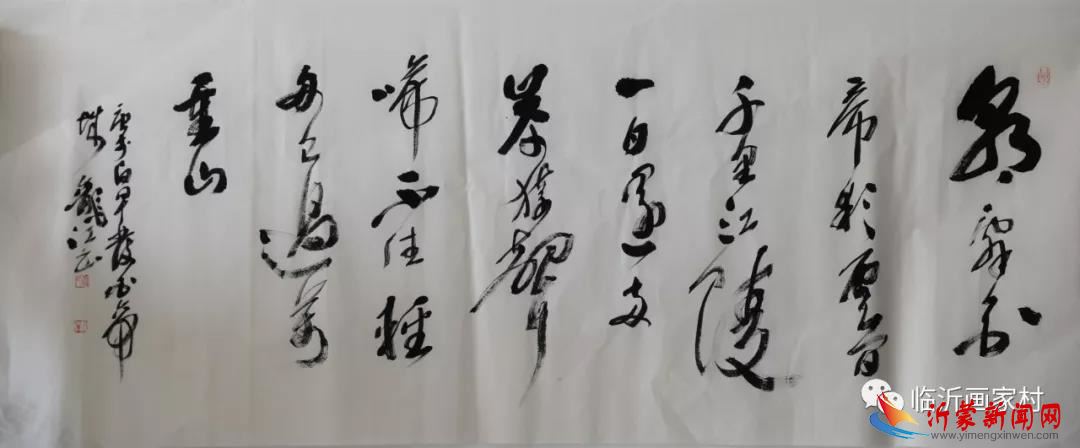 朝辭白
帝彩雲間
千里江陵
一日還兩
岸猿聲
啼不住輕
舟已過萬
重山
李白早發白帝
城 龍江書
临沂画家村
沂蒙新闻网
www.yimengxinwen.com